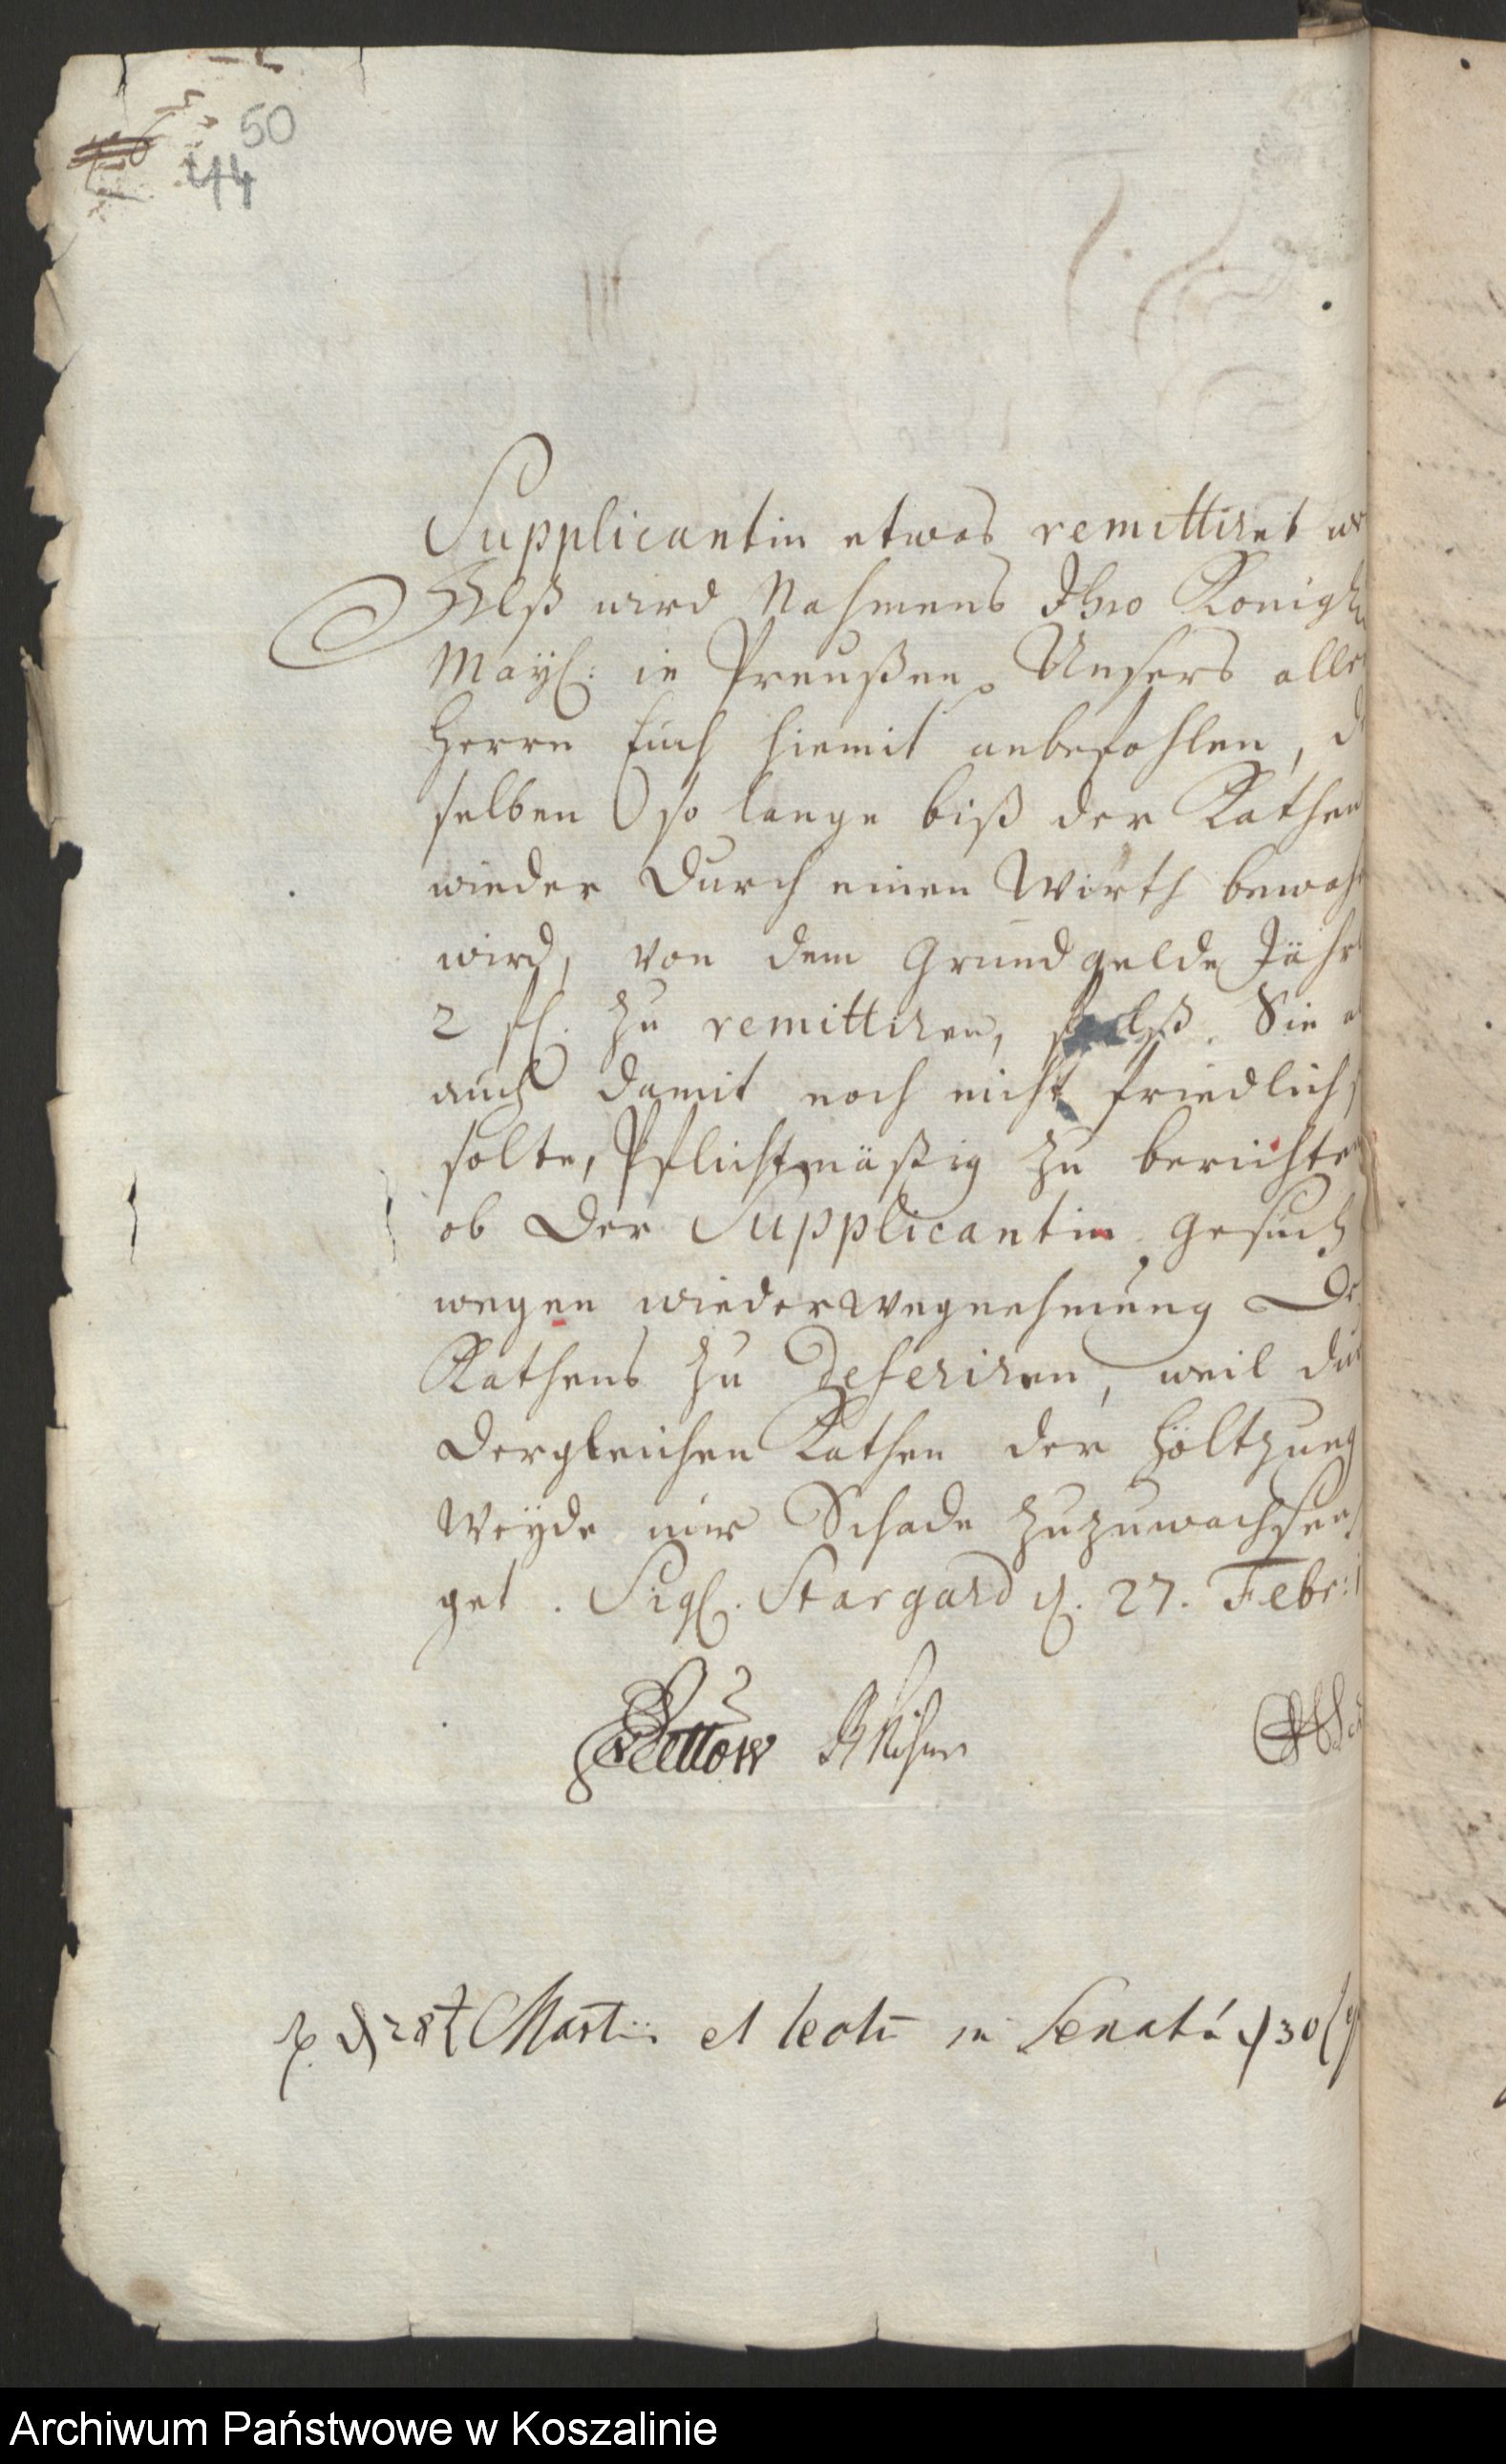 50
44
Supplicantin etwas remittiret
Alß wird Nahmens Ihro Königl
May: in Preußen Unsers aller
Herrn Euch hiemit anbefohlen,
selben so lange biß der Kathen
wieder durch einen Wirth bewoh
wird, von dem Grundgelde Jährl
2 fl. zu remittiren, falß Sie
auch damit noch nicht friedlich
solte, Pflichtmäßig zu berichten
ob der Supplicantin Gesuch
wegen wiederwegnehmung
Kathens zu deferiren, weil
dergleichen Kathen der Höltzung
Weyde nur Schade zuzuwachsen
get. Sigl. Stargard d. 27. Febr:
28t Martii et lectu in Senatu 30
Archiwum Państwowe w Koszalinie